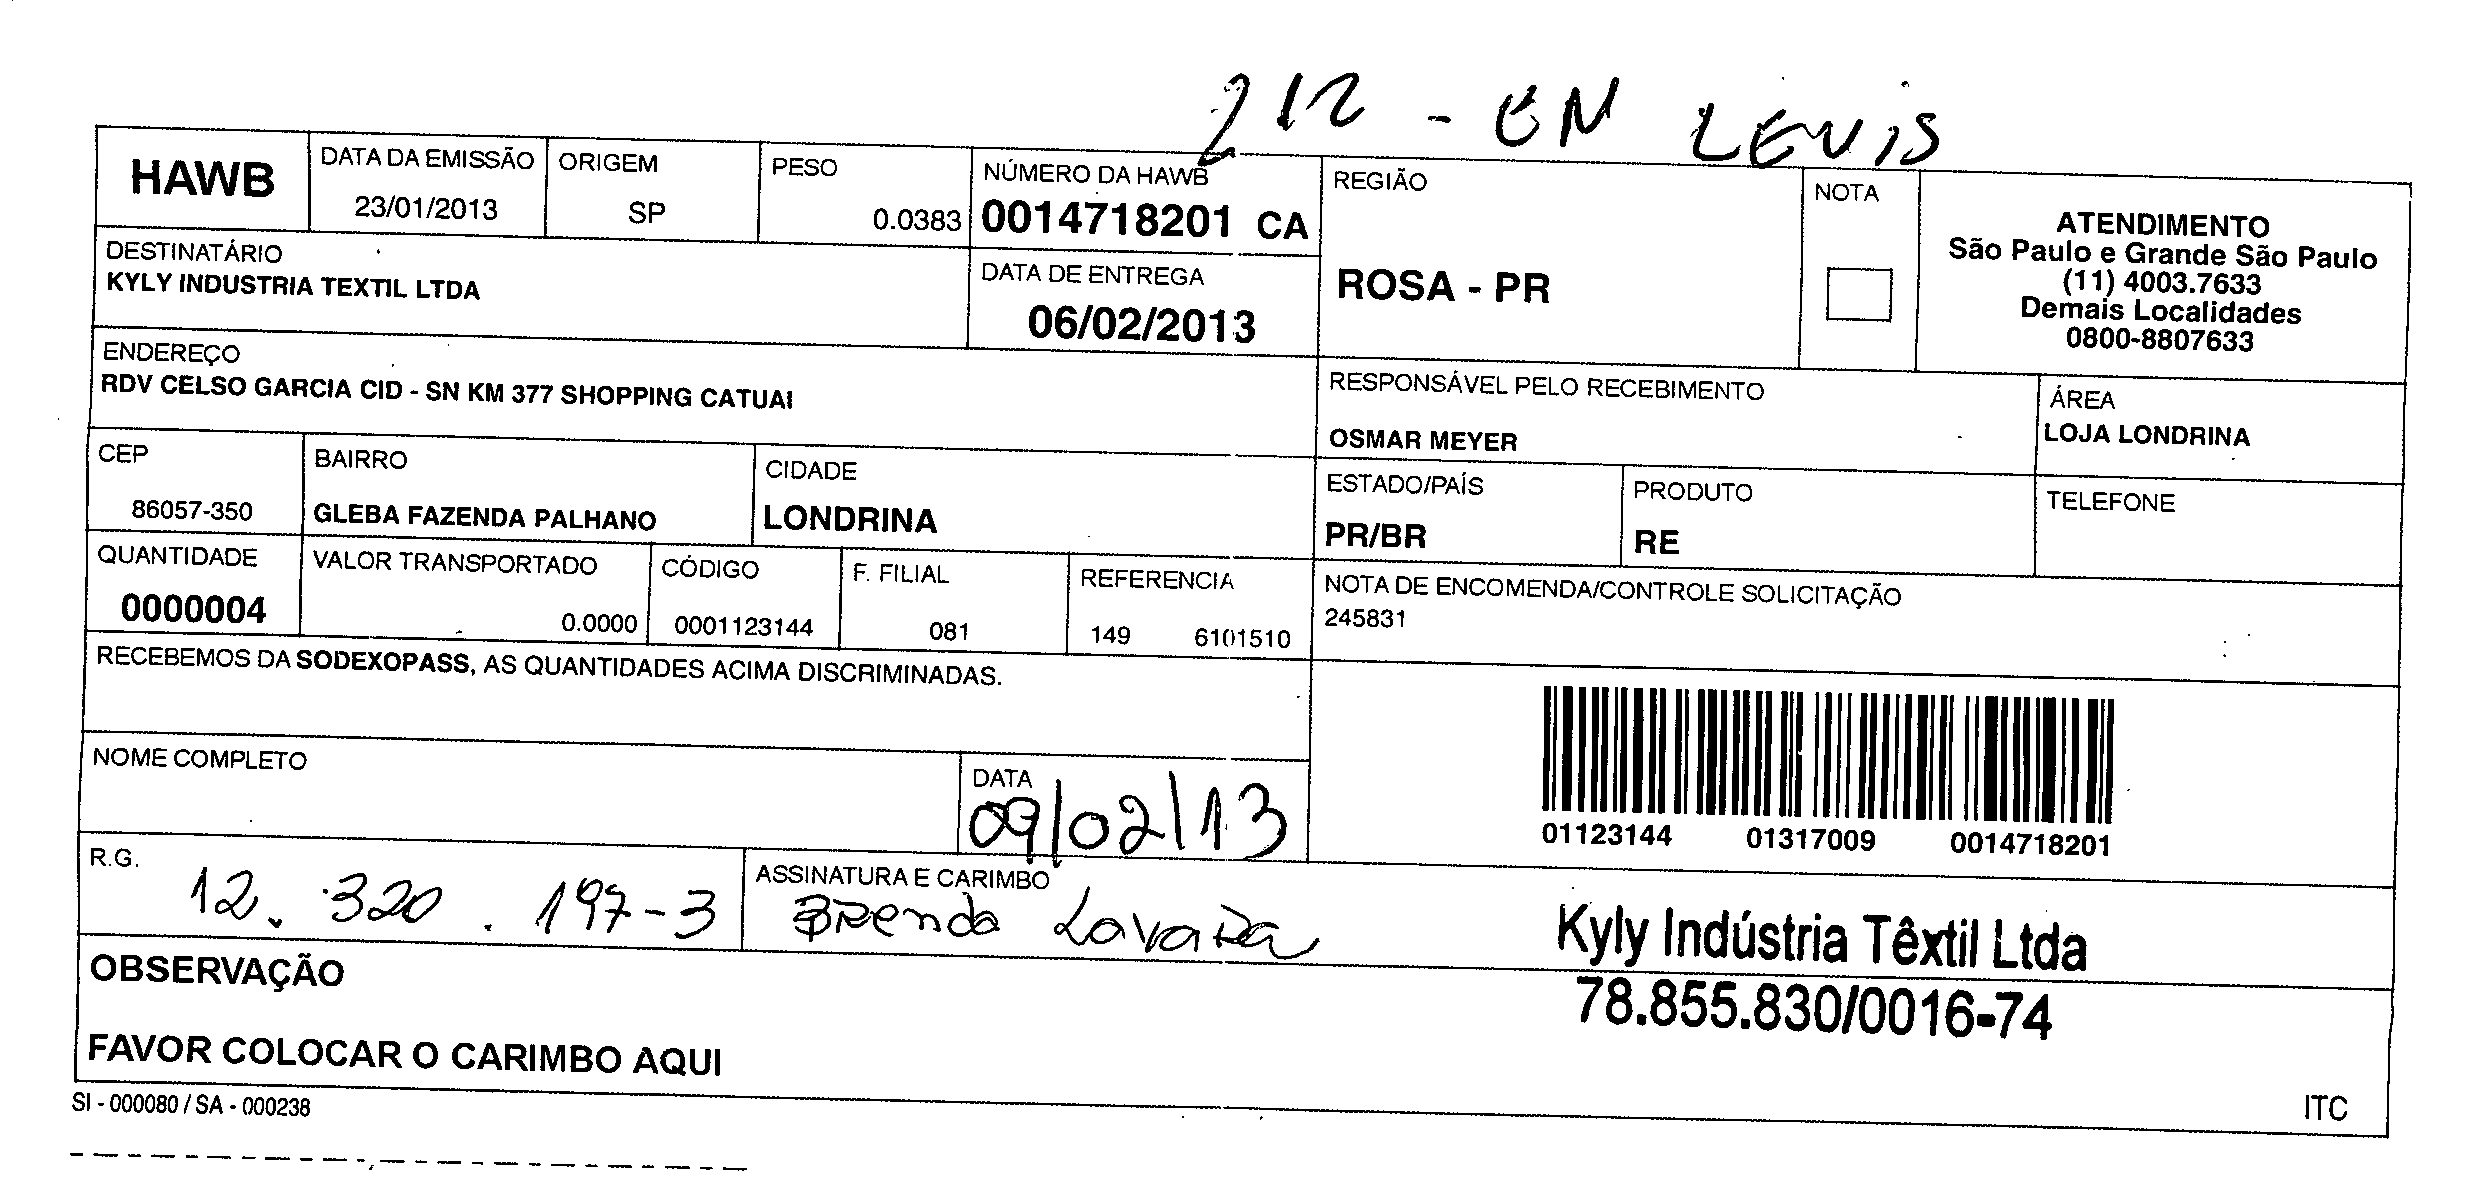 212 - EN LEVIS
HAWB
DATA DA EMISSÃO
23/01/2013
ORIGEM
SP
PESO
0.0383
NÚMERO DA HAWB
0014718201 CA
REGIÃO
ROSA - PR
NOTA
ATENDIMENTO
São Paulo e Grande São Paulo
(11) 4003.7633
Demais Localidades
0800-8807633
DESTINATÁRIO
KYLY INDUSTRIA TEXTIL LTDA
DATA DE ENTREGA
06/02/2013
ENDEREÇO
RDV CELSO GARCIA CID - SN KM 377 SHOPPING CATUAI
RESPONSÁVEL PELO RECEBIMENTO
OSMAR MEYER
ÁREA
LOJA LONDRINA
CEP
86057-350
BAIRRO
GLEBA FAZENDA PALHANO
CIDADE
LONDRINA
ESTADO/PAÍS
PR/BR
PRODUTO
RE
TELEFONE
QUANTIDADE
0000004
VALOR TRANSPORTADO
0.0000
CÓDIGO
0001123144
F. FILIAL
081
REFERENCIA
149 6101510
NOTA DE ENCOMENDA/CONTROLE SOLICITAÇÃO
245831
RECEBEMOS DA SODEXOPASS, AS QUANTIDADES ACIMA DISCRIMINADAS.
NOME COMPLETO
DATA
09/02/13
01123144 01317009 0014718201
R.G.
12.320.197-3
ASSINATURA E CARIMBO
Brenda Lavara
Kyly Indústria Têxtil Ltda
78.855.830/0016-74
OBSERVAÇÃO
FAVOR COLOCAR O CARIMBO AQUI
SI - 000080 / SA - 000238
ITC